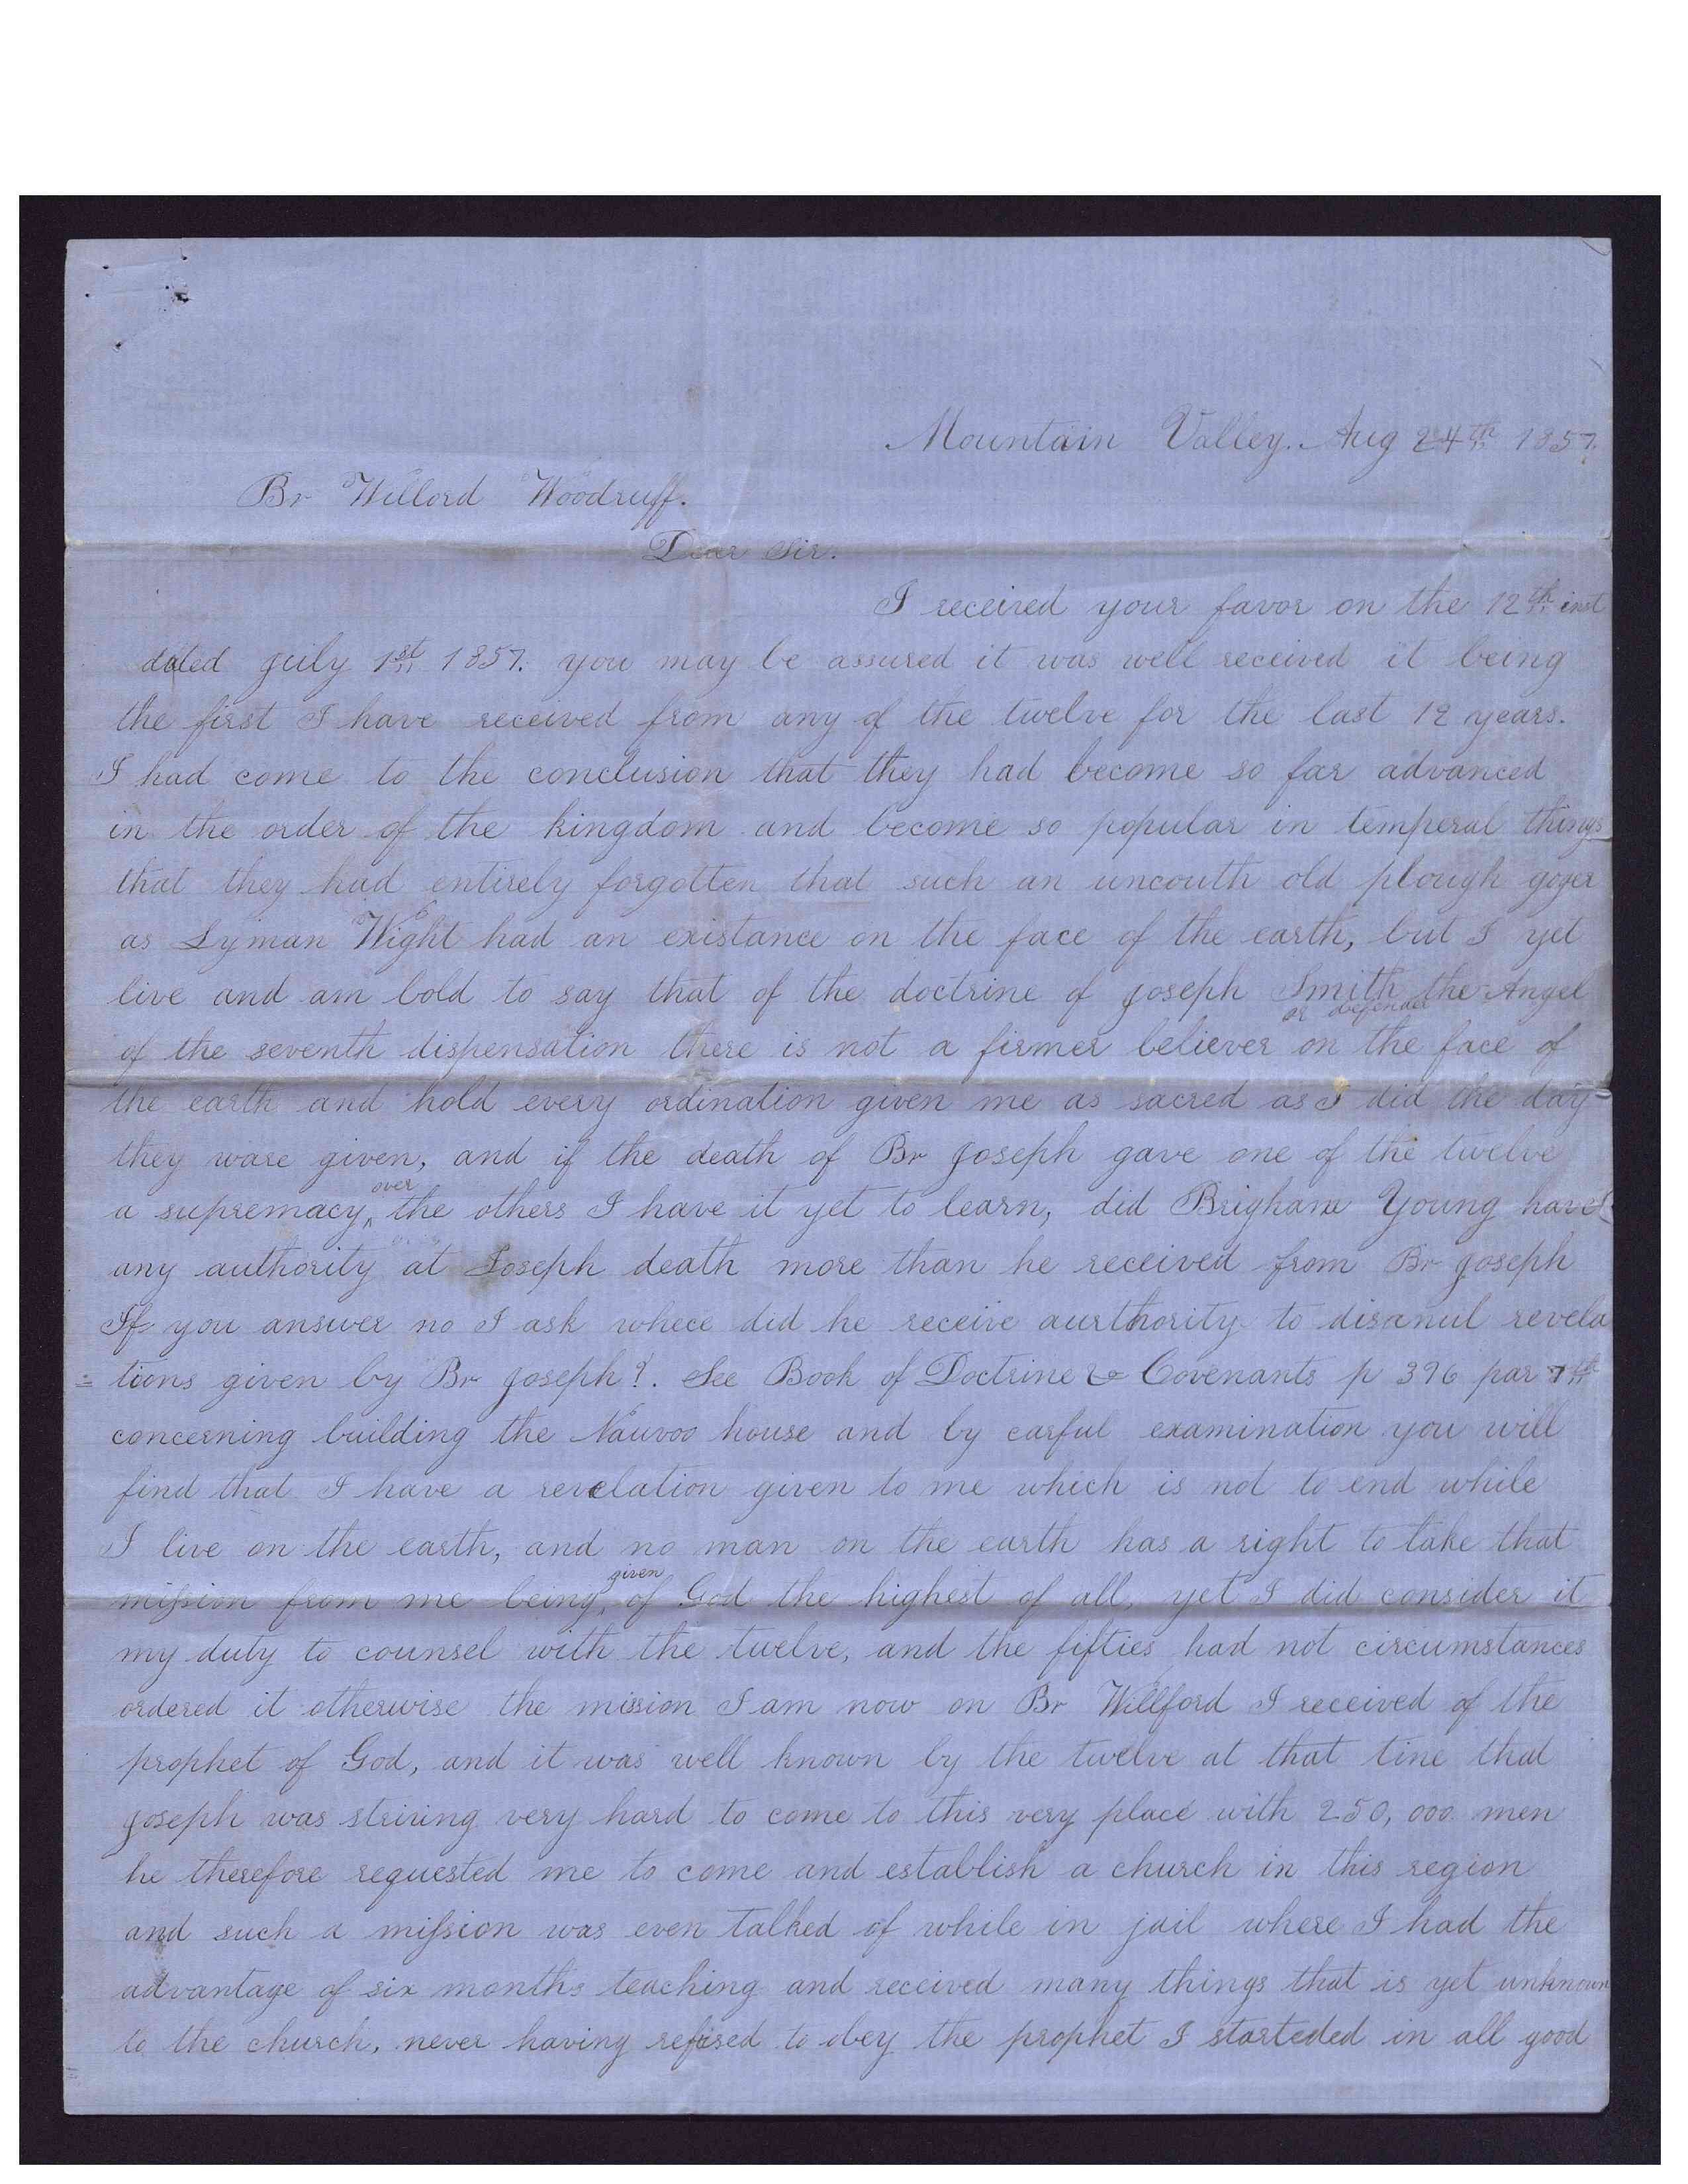 Mountain Valley. Aug 24th 1857.
Br Willord Woodruff.
Dear Sir.
I received your favor on the 12th inst
dated july 1st 1857. you may be assured it was well received it being
the first I have received from any of the twelve for the last 12 years.
I had come to the conclusion that they had become so far advanced
in the order of the kingdom and become so popular in temperal things
that they had entirely forgotten that such an uncouth old plough goger
as Lyman Wight had an existance on the face of the earth, but I yet
live and am bold to say that of the doctrine of joseph Smith the Angel
of the seventh dispensation there is not a firmer believer or defender on the face of
the earth and hold every ordination given me as sacred as I did the day
they ware given, and if the death of Br joseph gave one of the twelve
a supremacy, over the others I have it yet to learn, did Brigham Young have
any authority at Joseph death more than he received from Br joseph
If you answer no I ask whece did he receive aurthority to disanul revela
= tions given by Br joseph?. See Book of Doctrine & Covenants p 396 par 7th
concerning building the Nauvoo house and by carful examination you will
find that I have a revelation given to me which is not to end while
I live on the earth, and no man on the earth has a right to take that
mission from me being, given of God the highest of all, yet I did consider it
my duty to counsel with the twelve, and the fifties had not circumstances
ordered it otherwise the mission I am now on Br Willford I received of the
prophet of God, and it was well known by the twelve at that tine that
joseph was striving very hard to come to this very place with 250,000 men
he therefore requested me to come and establish a church in this region
and such a mission was even talked of while in jail where I had the
advantage of six months teaching and received many things that is yet unknown
to the church, never having refused to obey the prophet I starteded in all good